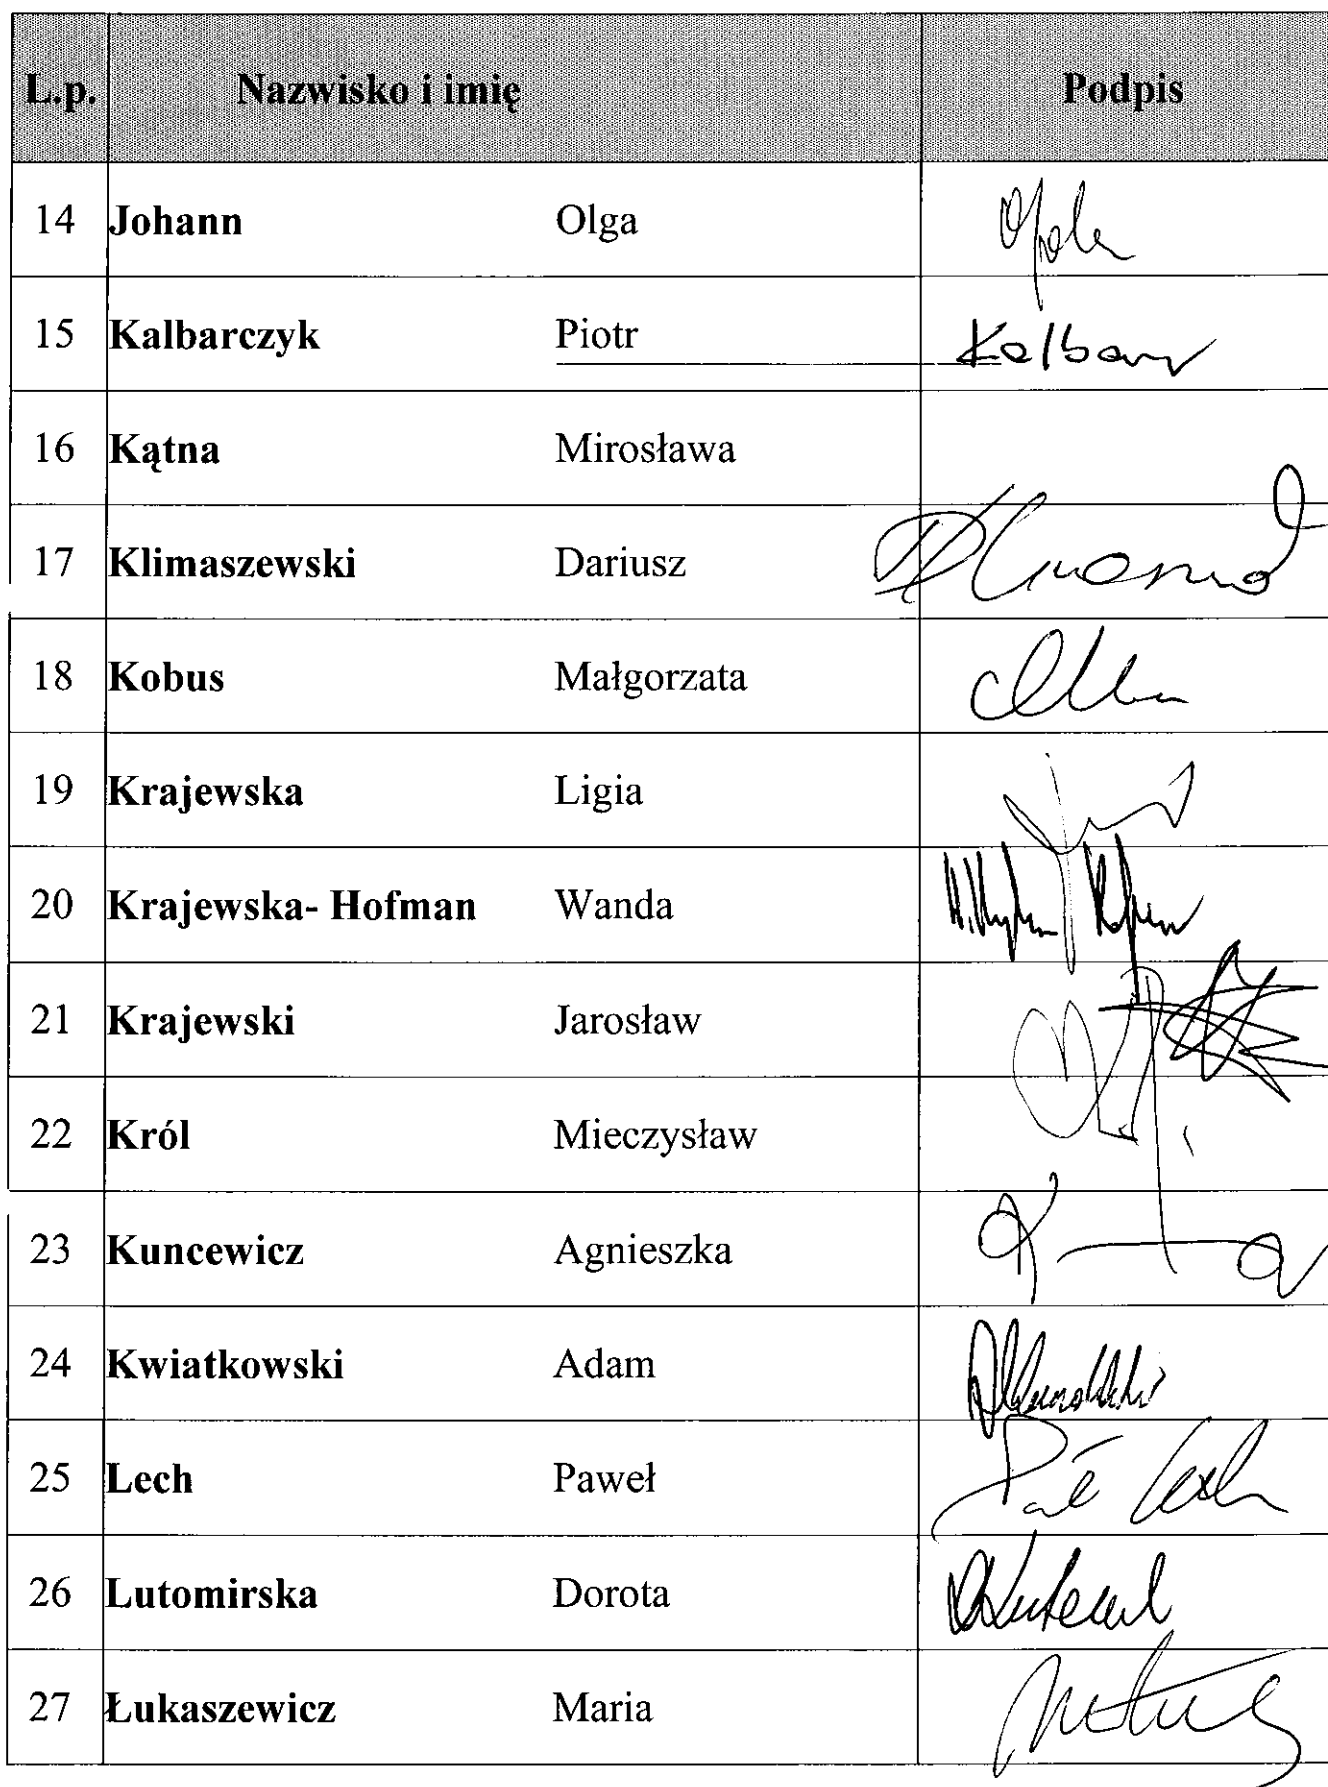 L.p. Nazwisko i imię Podpis
14 Johann Olga
15 Kalbarczyk Piotr Kalbar
16 Kątna Mirosława
17 Klimaszewski Dariusz
18 Kobus Małgorzata
19 Krajewska Ligia
20 Krajewska- Hofman Wanda
21 Krajewski Jarosław
22 Król Mieczysław
23 Kuncewicz Agnieszka
24 Kwiatkowski Adam
25 Lech Paweł
26 Lutomirska Dorota
27 Łukaszewicz Maria